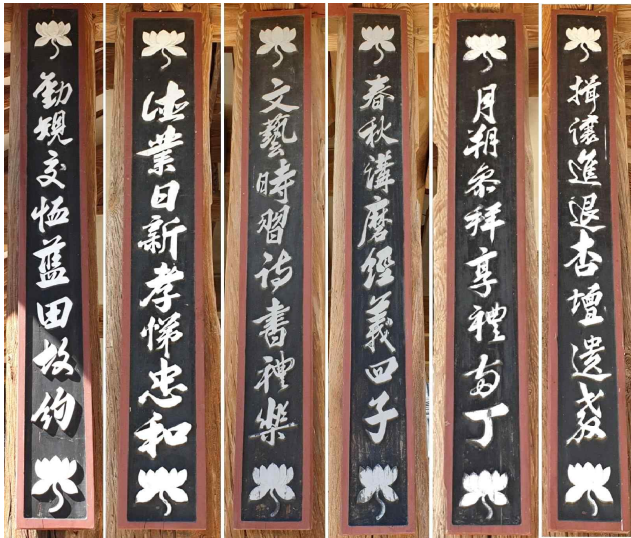 揖讓進退杏壇遺教
月朔參拜享禮兩丁
春秋講磨經義四子
文藝時習詩書禮樂
德業日新孝悌忠和
勸規交恤藍田故約